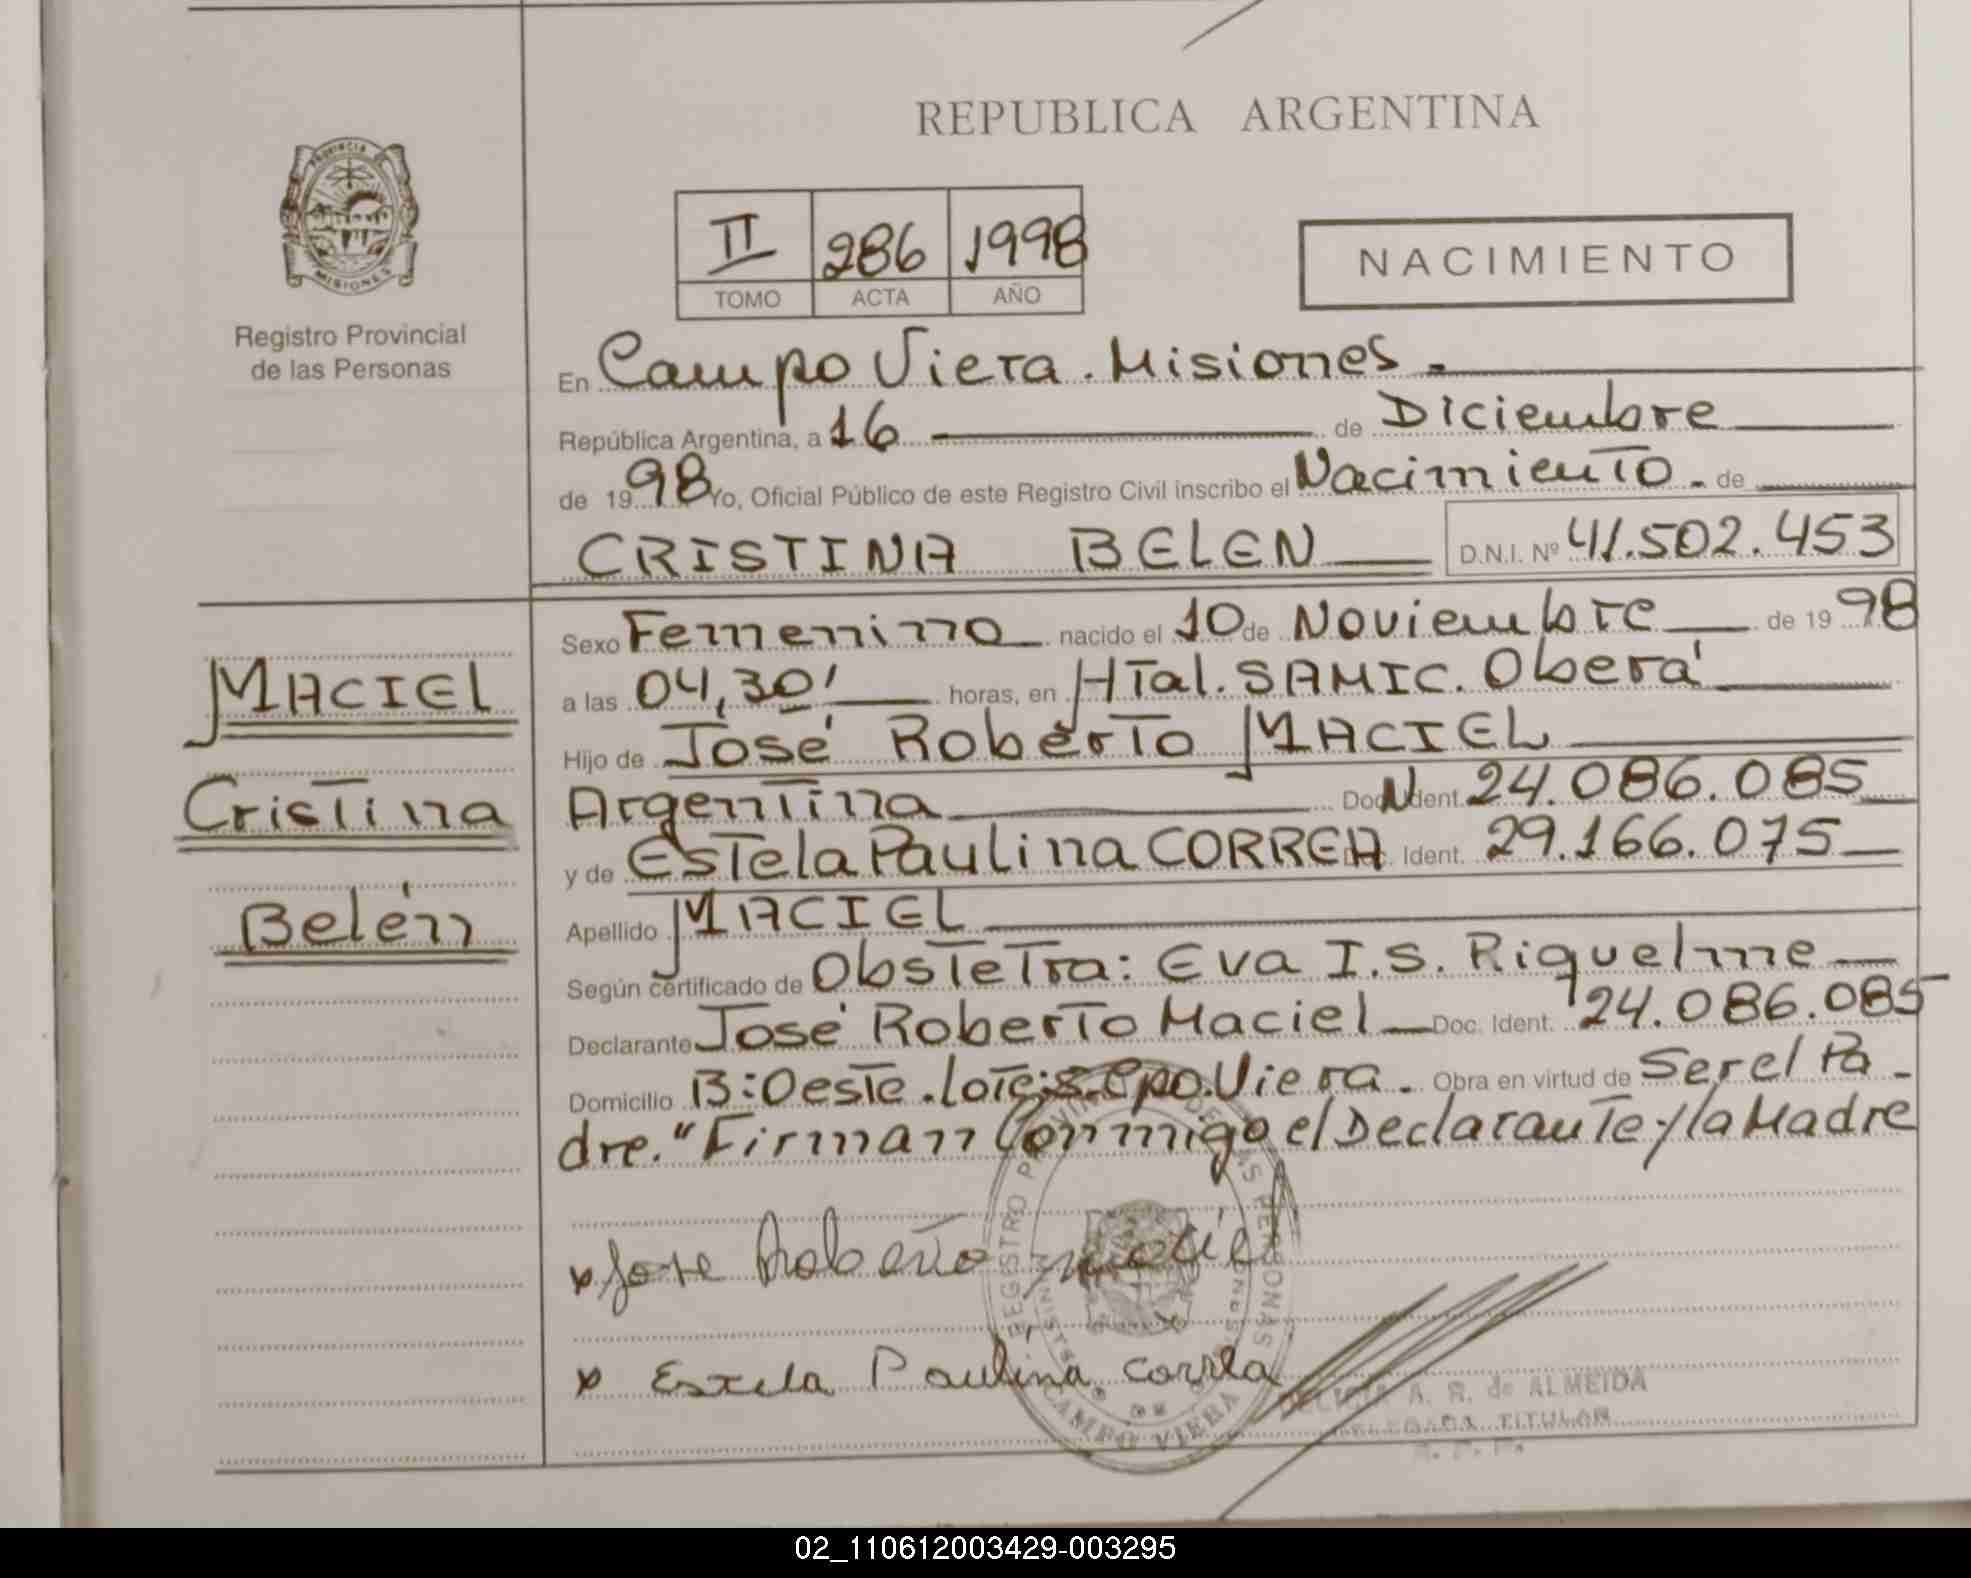 REPUBLICA ARGENTINA
PROVINCIA DE
MISIONES
Registro Provincial
de las Personas
II 286 1998
TOMO ACTA AÑO
NACIMIENTO
En Campo Viera. Misiones.
República Argentina, a 16 de Diciembre
de 1998 Yo, Oficial Público de este Registro Civil inscribo el Nacimiento. de
CRISTINA BELEN D.N.I. Nº 41.502.453
MACIEL
Cristina
Belén
Sexo Femenino nacido el 10 de Noviembre de 1998
a las 04,30' horas, en HTal. SAMIC. Oberá
Hijo de José Roberto MACIEL
Argentina Doc. Ident. 24.086.085
y de Estela Paulina CORREA Doc. Ident. 29.166.075
Apellido MACIEL
Según certificado de Obstetra: Eva I.S. Riquelme
Declarante José Roberto Maciel Doc. Ident. 24.086.085
Domicilio B: Oeste. Lote: Cpo. Viera. Obra en virtud de Ser el Pa-
dre. "Firman Conmigo el Declarante y la Madre
x Jose Roberto Maciel
x Estela Paulina Correa
REGISTRO PROVINCIAL DE LAS PERSONAS
MISIONES
CAMPO VIERA
A. R. de ALMEIDA
DELEGADA TITULAR
02_110612003429-003295